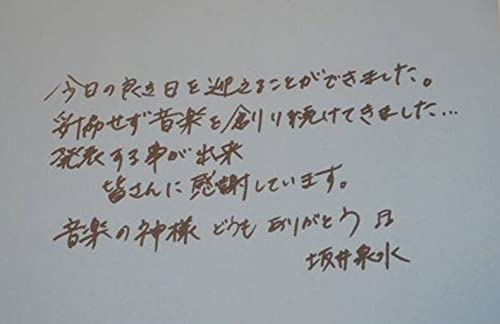 今日の良き日を迎えることができました。
妥協せず音楽を創り続けてきました…
発表する事が出来
皆さんに感謝しています。
音楽の神様 どうも ありがとう ♫
坂井泉水